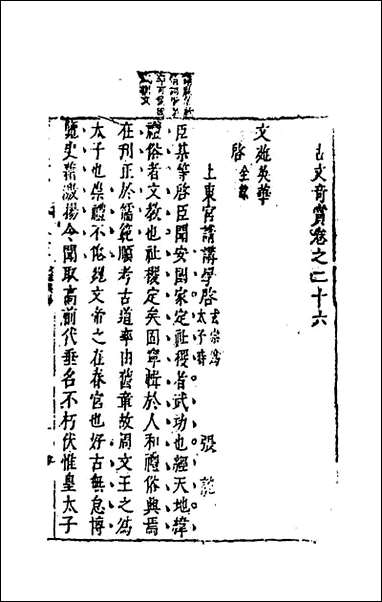 古文奇賞卷之二十六
文苑英華
啓全錄
上東宮請講學啓玄宗為太子時 張說
臣某等啓臣聞安國家定社稷者武功也經天地緯
禮俗者文教也社稷定矣固寧輯於人和禮俗興焉
在刊正於儒範順考古道率由舊章故周文王之為
太子也崇禮不倦魏文帝之在春宮也好古無怠博
覽史籍激揚令聞取高前代垂名不朽伏惟皇太子